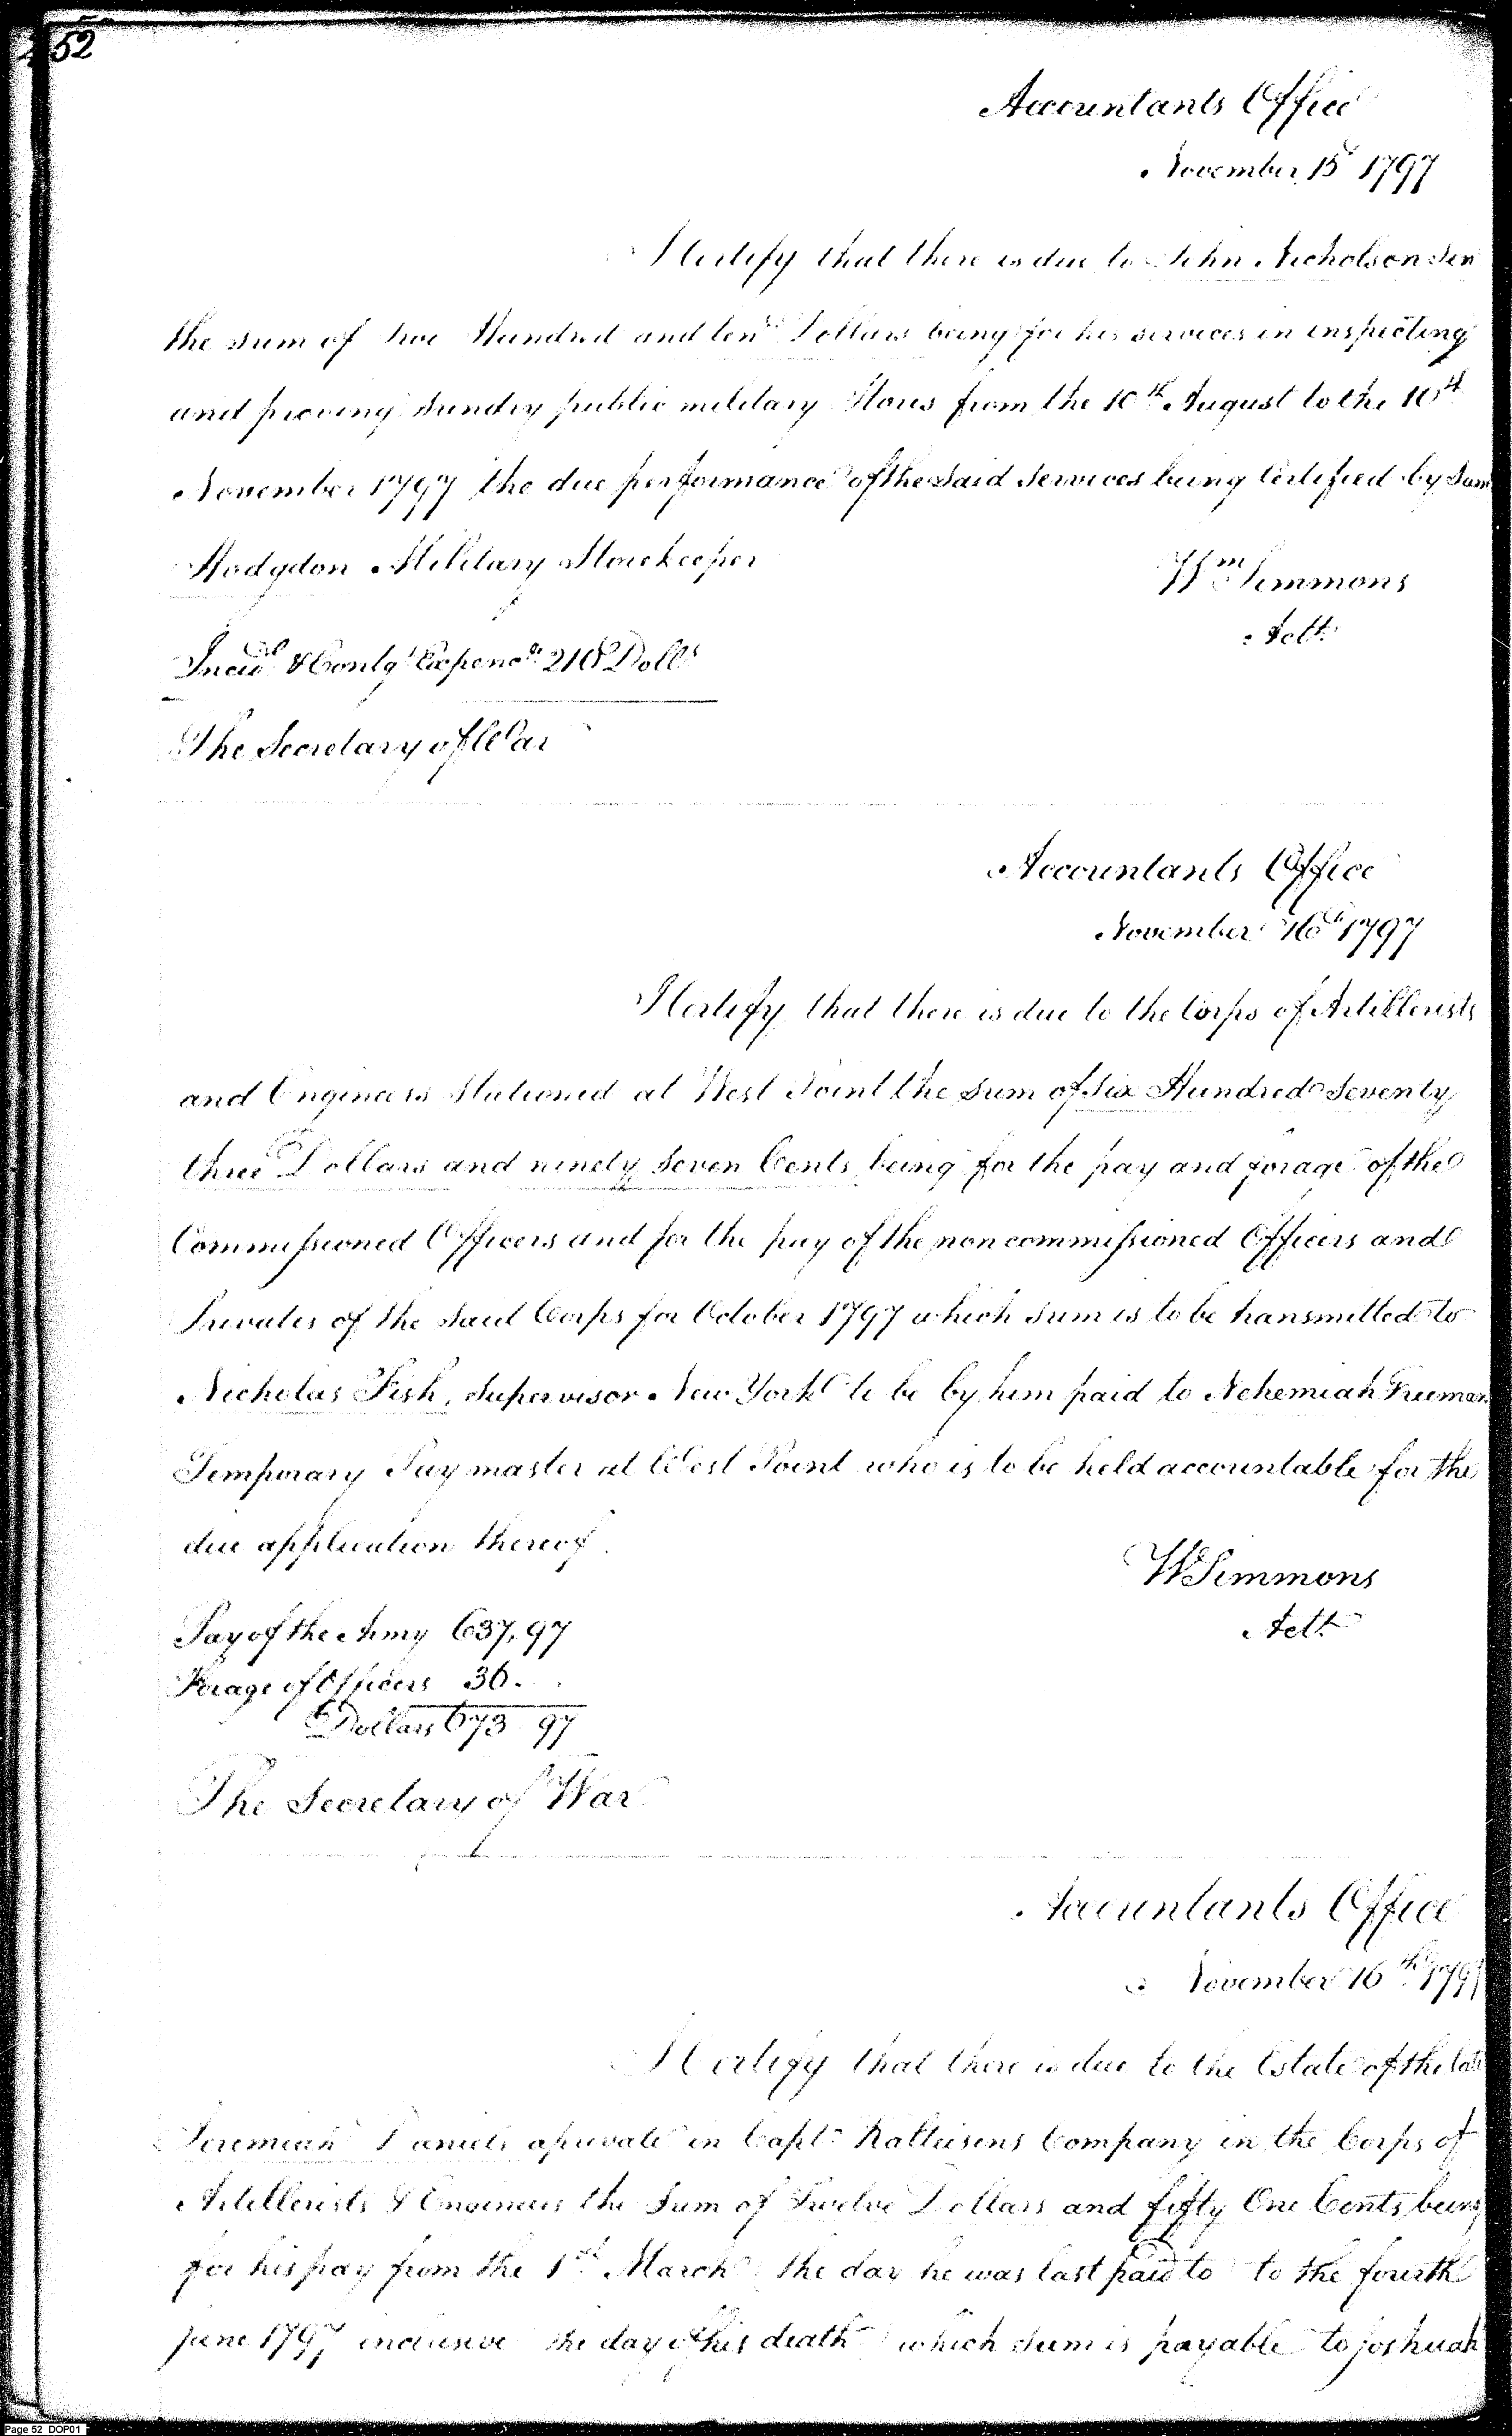 52
Accountants Office
November 15 1797
I Certify that there is due to John Nicholson Sen
the sum of two Hundred and ten Dollars being for his services in inspecting
and proving Sundry public military Stores from the 10th August to the 10th
November 1797 the due performance of the said Services being Certified by Sam
Hodgdon Military Storekeeper
Wm Simmons
Actt
Incid & Contgt Expences 210 Dolls
The Secretary of War
Accountants Office
November 16th 1797
I Certify that there is due to the Corps of Artillerists
and Engineers Stationed at West Point the Sum of Six Hundred Seventy
three Dollars and ninety seven Cents being for the pay and forage of the
Commissioned Officers and for the pay of the non commissioned Officers and
Privates of the said Corps for October 1797 which sum is to be transmitted to
Nicholas Fish, Supervisor New York to be by him paid to Nehemiah Freeman
Temporary Paymaster at West Point who is to be held accountable for the
due application thereof.
W Simmons
Actt
Pay of the Army 637,97
Forage of Officers 36..
Dollars 673 97
The Secretary of War
Accountants Office
November 16th 1797
I Certify that there is due to the Estate of the late
Jeremiah Daniels a private in Capt Kalteisens Company in the Corps of
Artillerists & Engineers the Sum of Twelve Dollars and fifty One Cents being
for his pay from the 1st March the day he was last paid to to the fourth
June 1797 inclusive the day of his death which sum is payable to Joshuah
Page 52 DOP01